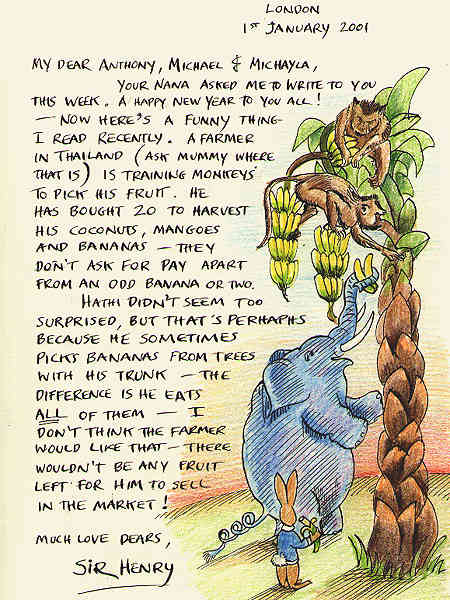 LONDON
1ST JANUARY 2001
MY DEAR ANTHONY, MICHAEL & MICHAYLA,
YOUR NANA ASKED ME TO WRITE TO YOU
THIS WEEK. A HAPPY NEW YEAR TO YOU ALL!
— NOW HERE'S A FUNNY THING —
I READ RECENTLY. A FARMER
IN THAILAND (ASK MUMMY WHERE
THAT IS) IS TRAINING MONKEYS
TO PICK HIS FRUIT. HE
HAS BOUGHT 20 TO HARVEST
HIS COCONUTS, MANGOES
AND BANANAS — THEY
DON'T ASK FOR PAY APART
FROM AN ODD BANANA OR TWO.
HATHI DIDN'T SEEM TOO
SURPRISED, BUT THAT'S PERHAPHS
BECAUSE HE SOMETIMES
PICKS BANANAS FROM TREES
WITH HIS TRUNK — THE
DIFFERENCE IS HE EATS
ALL OF THEM — I
DON'T THINK THE FARMER
WOULD LIKE THAT — THERE
WOULDN'T BE ANY FRUIT
LEFT FOR HIM TO SELL
IN THE MARKET!
MUCH LOVE DEARS,
SIR HENRY